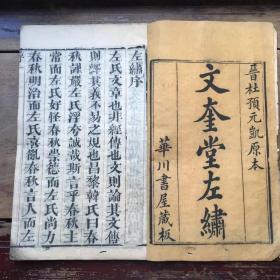 晉杜預元凱原本
文奎堂左繡
華川書屋藏板
左繡序
左氏文章也非經傳也文則論其文傳
則繹其義不易之規也昌黎韓氏曰春
秋謹嚴左氏浮夸誠哉斯言乎春秋主
常而左氏好怪春秋崇德而左氏尚力
春秋明治而左氏喜亂春秋言人而左